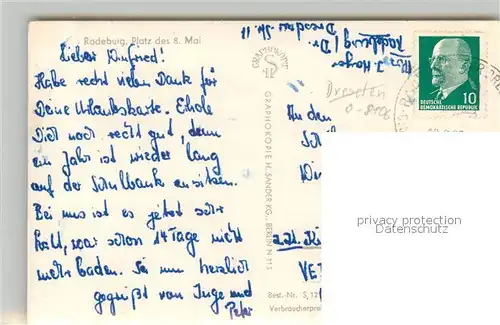 Radeburg, Platz des 8. Mai
Lieber Winfried!
Habe recht vielen Dank für
Deine Urlaubskarte. Erhole
Dich noch recht gut, denn
ein Jahr ist wieder lang
auf der Schulbank zu sitzen.
Bei uns ist es jetzt sehr
kalt, war schon 14 Tage nicht
mehr baden. Sei nun herzlich
gegrüßt von Inge und
Peter
GRAPHOKOPIE
GRAPHOKOPIE H. SANDER KG., BERLIN N 113
Best.-Nr. S,12
Verbraucherpreis
Radeburg / Dr.
Dresdner Str. 11
DEUTSCHE
DEMOKRATISCHE REPUBLIK
10
Dresden
0-8106
An den
privacy protection
Datenschutz
z.Zt.